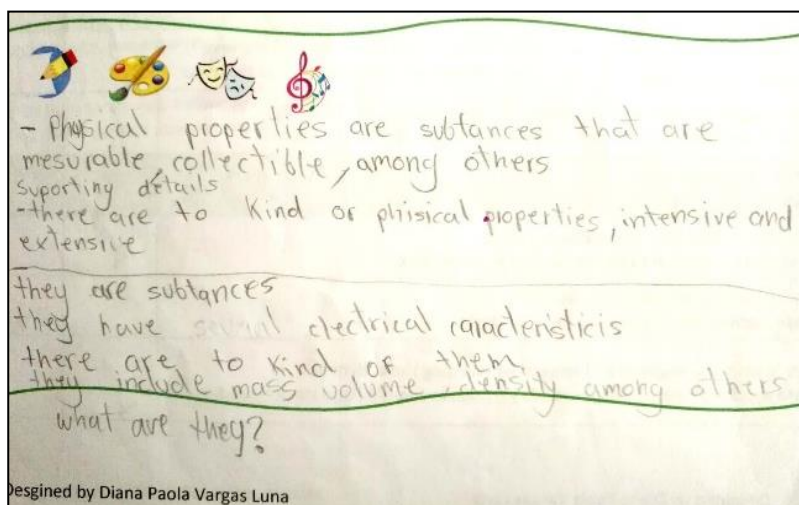 - Physical properties are subtances that are
mesurable, collectible, among others
suporting details
-there are to kind or phisical properties, intensive and
extensive
they are subtances
they have several electrical caracteristicis
there are to kind of them.
they include mass volume, density among others
what are they?
Desgined by Diana Paola Vargas Luna